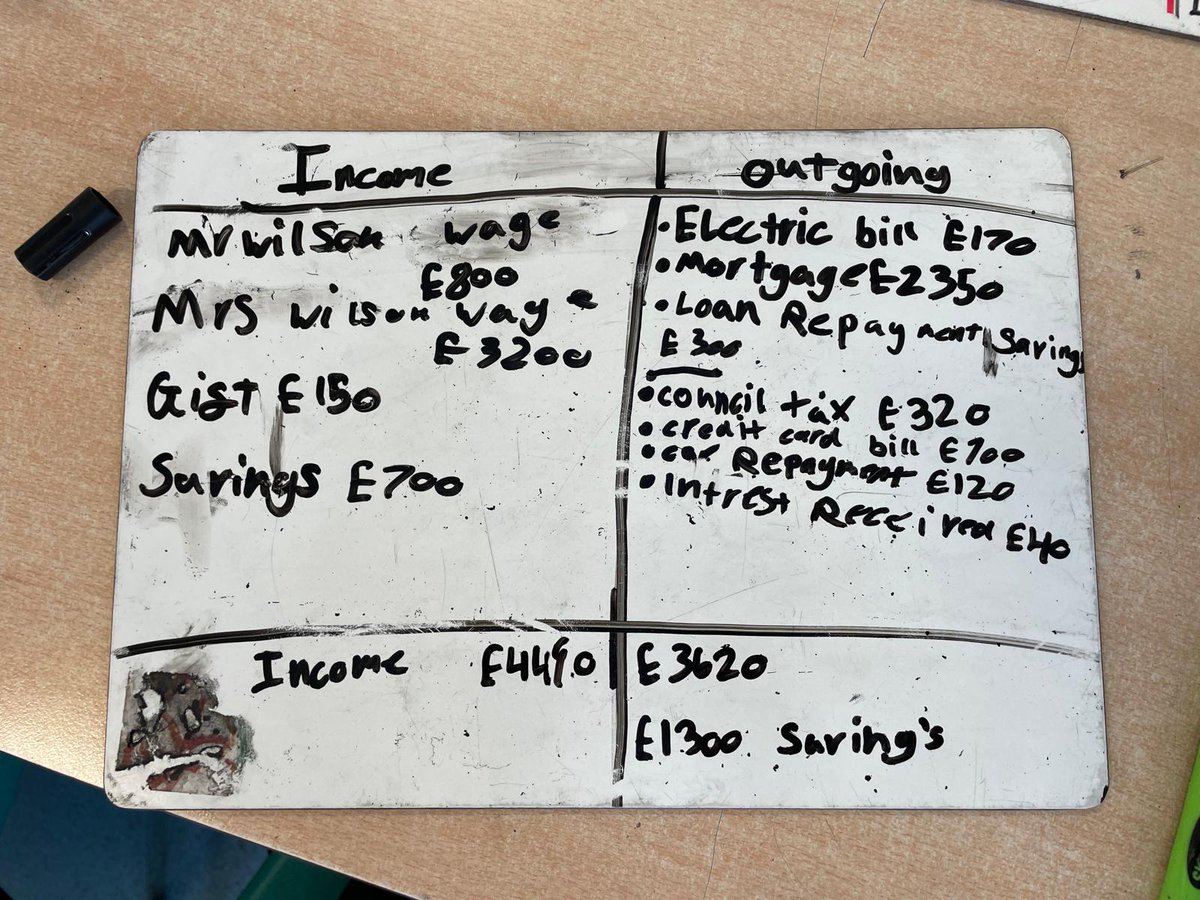 Income
Mr wilson wage
£800
Mrs wilson wage
£3200
Gist £150
Savings £700
Income £4490
outgoing
• Electric bill £170
• Mortgage £2350
• Loan Repayment Savings
£300
• council tax £320
• credit card bill £700
• car Repayment £120
• Intrest Received £40
£3620
£1300 Saving's